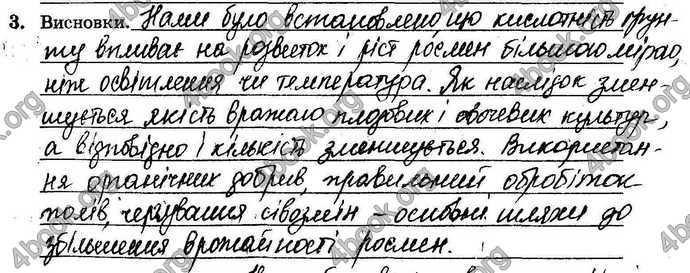 3. Висновки. Нами було встановлено, що кислотність грун-
ту впливає на розвиток і ріст рослин більшою мірою,
ніж освітлення чи температура. Як наслідок змен-
шується якість вражаю плодових і овочевих культур,
а відповідно і кількість зменшується. Використан-
ня органічних добрив, правильний обробіток
полів, чергування сівозмін – основні шляхи до
збільшення врожайності рослин.
4book.org